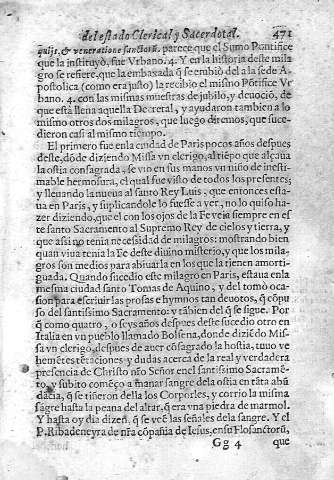 del estado Clerical y Sacerdotal. 471
quijs, & veneratione sanctorũ. parece que el Sumo Pontifice
que la instituyò, fue Vrbano. 4. Y en la historia deste mila
gro se refiere, que la embaxada q̃ se embiò del a la sede A-
postolica (como era justo) la recibio el mismo Põtifice Vr
bano. 4. con las mismas muestras de jubilo, y deuociõ, de
que està llena aquella Decretal, y ayudaron tambien a lo
mismo otros dos milagros, que luego diremos, que suce-
dieron casi al mismo tiempo.
El primero fue en la ciudad de Paris pocos años despues
deste, dõde diziendo Missa vn clerigo, al tiẽpo que alçaua
la ostia consagrada, se vio en sus manos vn niño de inesti-
mable hermosura, el qual fue visto de todos los presentes;
y lleuando la nueua al santo Rey Luis, que entonces esta-
ua en Paris, y suplicandole lo fuesse a ver, no lo quiso ha-
zer diziendo, que el con los ojos de la Fe veia siempre en es
te santo Sacramento al Supremo Rey de cielos y tierra, y
que assi no tenia necessidad de milagros: mostrando bien
quan viua tenia la Fe deste diuino misterio, y que los mila-
gros son medios para abiuarla en los que la tienen amorti-
guada. Quando sucedio este milagro en Paris, estaua en la
mesma ciudad santo Tomas de Aquino, y del tomò oca
sion para escriuir las prosas e hymnos tan deuotos, q̃ cõpu
so del santissimo Sacramento: y tãbien del q̃ se sigue. Por
q̃ como quatro, o seys años despues deste sucedio otro en
Italia en vn pueblo llamado Bolsena, donde diziẽdo Mis-
sa vn clerigo, despues de auer cõsagrado la hostia, tuuo ve
hemẽtes tẽtaciones y dudas acerca de la real y verdadera
presencia de Christo nr̃o Señor en el santissimo Sacramẽ-
to, y subito començo a manar sangre dela ostia en tãta abũ
dãcia, q̃ se tiñeron della los Corporles, y corrio la misma
sãgre hasta la peana del altar, q̃ era vna piedra de marmol.
Y hasta oy dia dizẽ, q̃ se veẽ las señales dela sangre. Y el
P. Ribadeneyra de nr̃a cõpañia de Iesus, en su Flosanctorũ,
Gg 4 que